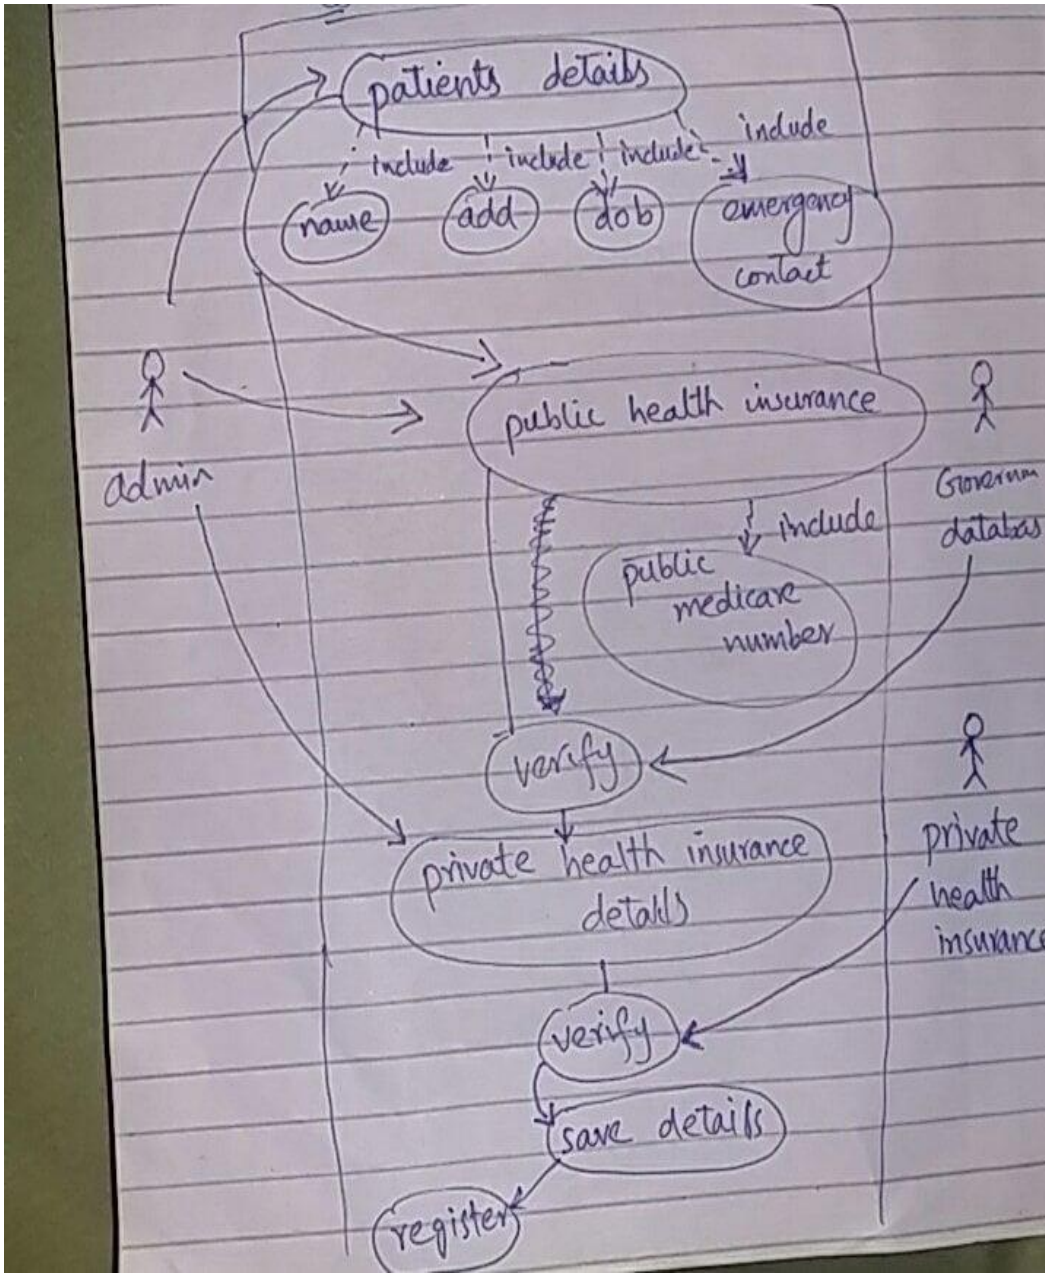 patients details
include
include
include
include
name
add
dob
emergency
contact
public health insurance
admin
Governm
databas
include
public
medicare
number
verify
private health insurance
details
private
health
insurance
verify
save details
register